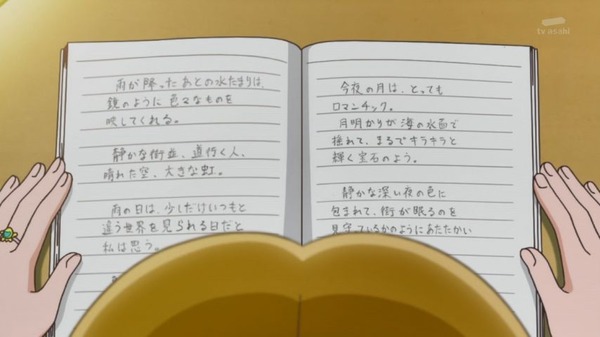 雨が降ったあとの水たまりは、
鏡のように色々なものを
映してくれる。
静かな街並、道行く人、
晴れた空、大きな虹。
雨の日は、少しだけいつもと
違う世界を見られる日だと
私は思う。
今夜の月は、とっても
ロマンチック。
月明かりが海の水面で
揺れて、まるでキラキラと
輝く宝石のよう。
静かな深い夜の色に
包まれて、街が眠るのを
見守っているかのようにあたたかい
tv asahi